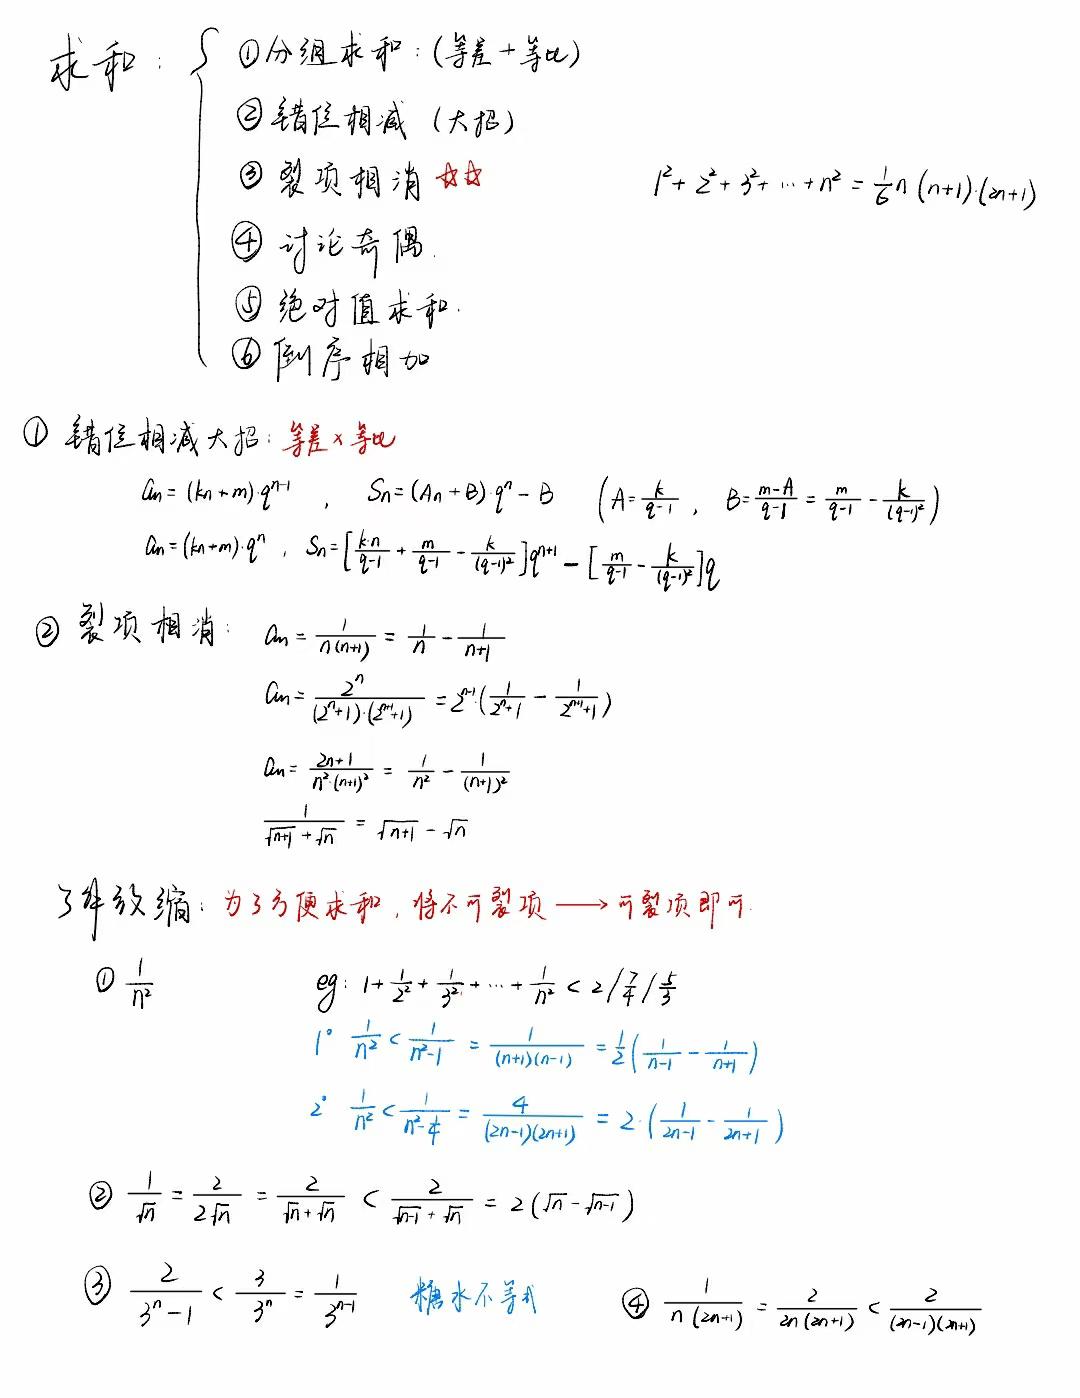 求和: ①分组求和:(等差+等比)
②错位相减(大招)
③裂项相消☆☆
1²+2²+3²+⋯+n²=1/6 n(n+1)·(2n+1)
④讨论奇偶.
⑤绝对值求和.
⑥倒序相加
①错位相减大招:等差×等比
an=(kn+m)·q^(n-1), Sn=(An+B)·q^n-B (A=k/(q-1), B=(m-A)/(q-1)=m/(q-1)-k/(q-1)²)
an=(kn+m)·q^n, Sn=[k·n/(q-1)+m/(q-1)-k/(q-1)²]q^(n+1)-[m/(q-1)-k/(q-1)²]q
②裂项相消: an=1/(n(n+1))=1/n-1/(n+1)
an=2^n/((2^n+1)·(2^(n+1)+1))=2^(n-1)·(1/(2^n+1)-1/(2^(n+1)+1))
an=(2n+1)/(n²·(n+1)²)=1/n²-1/(n+1)²
1/(√(n+1)+√n)=√(n+1)-√n
放缩:为了方便求和,将不可裂项→可裂项即可.
①1/n² eg:1+1/2²+1/3²+⋯+1/n²<2/7/4/5/3
1° 1/n²<1/(n²-1)=1/((n+1)(n-1))=1/2(1/(n-1)-1/(n+1))
2° 1/n²<1/(n²-1/4)=4/((2n-1)(2n+1))=2·(1/(2n-1)-1/(2n+1))
②1/√n=2/(2√n)=2/(√n+√n)<2/(√(n-1)+√n)=2(√n-√(n-1))
③2/(3^n-1)<3/3^n=1/3^(n-1) 糖水不等式
④1/(n(2n+1))=2/(2n(2n+1))<2/((2n-1)(2n+1))